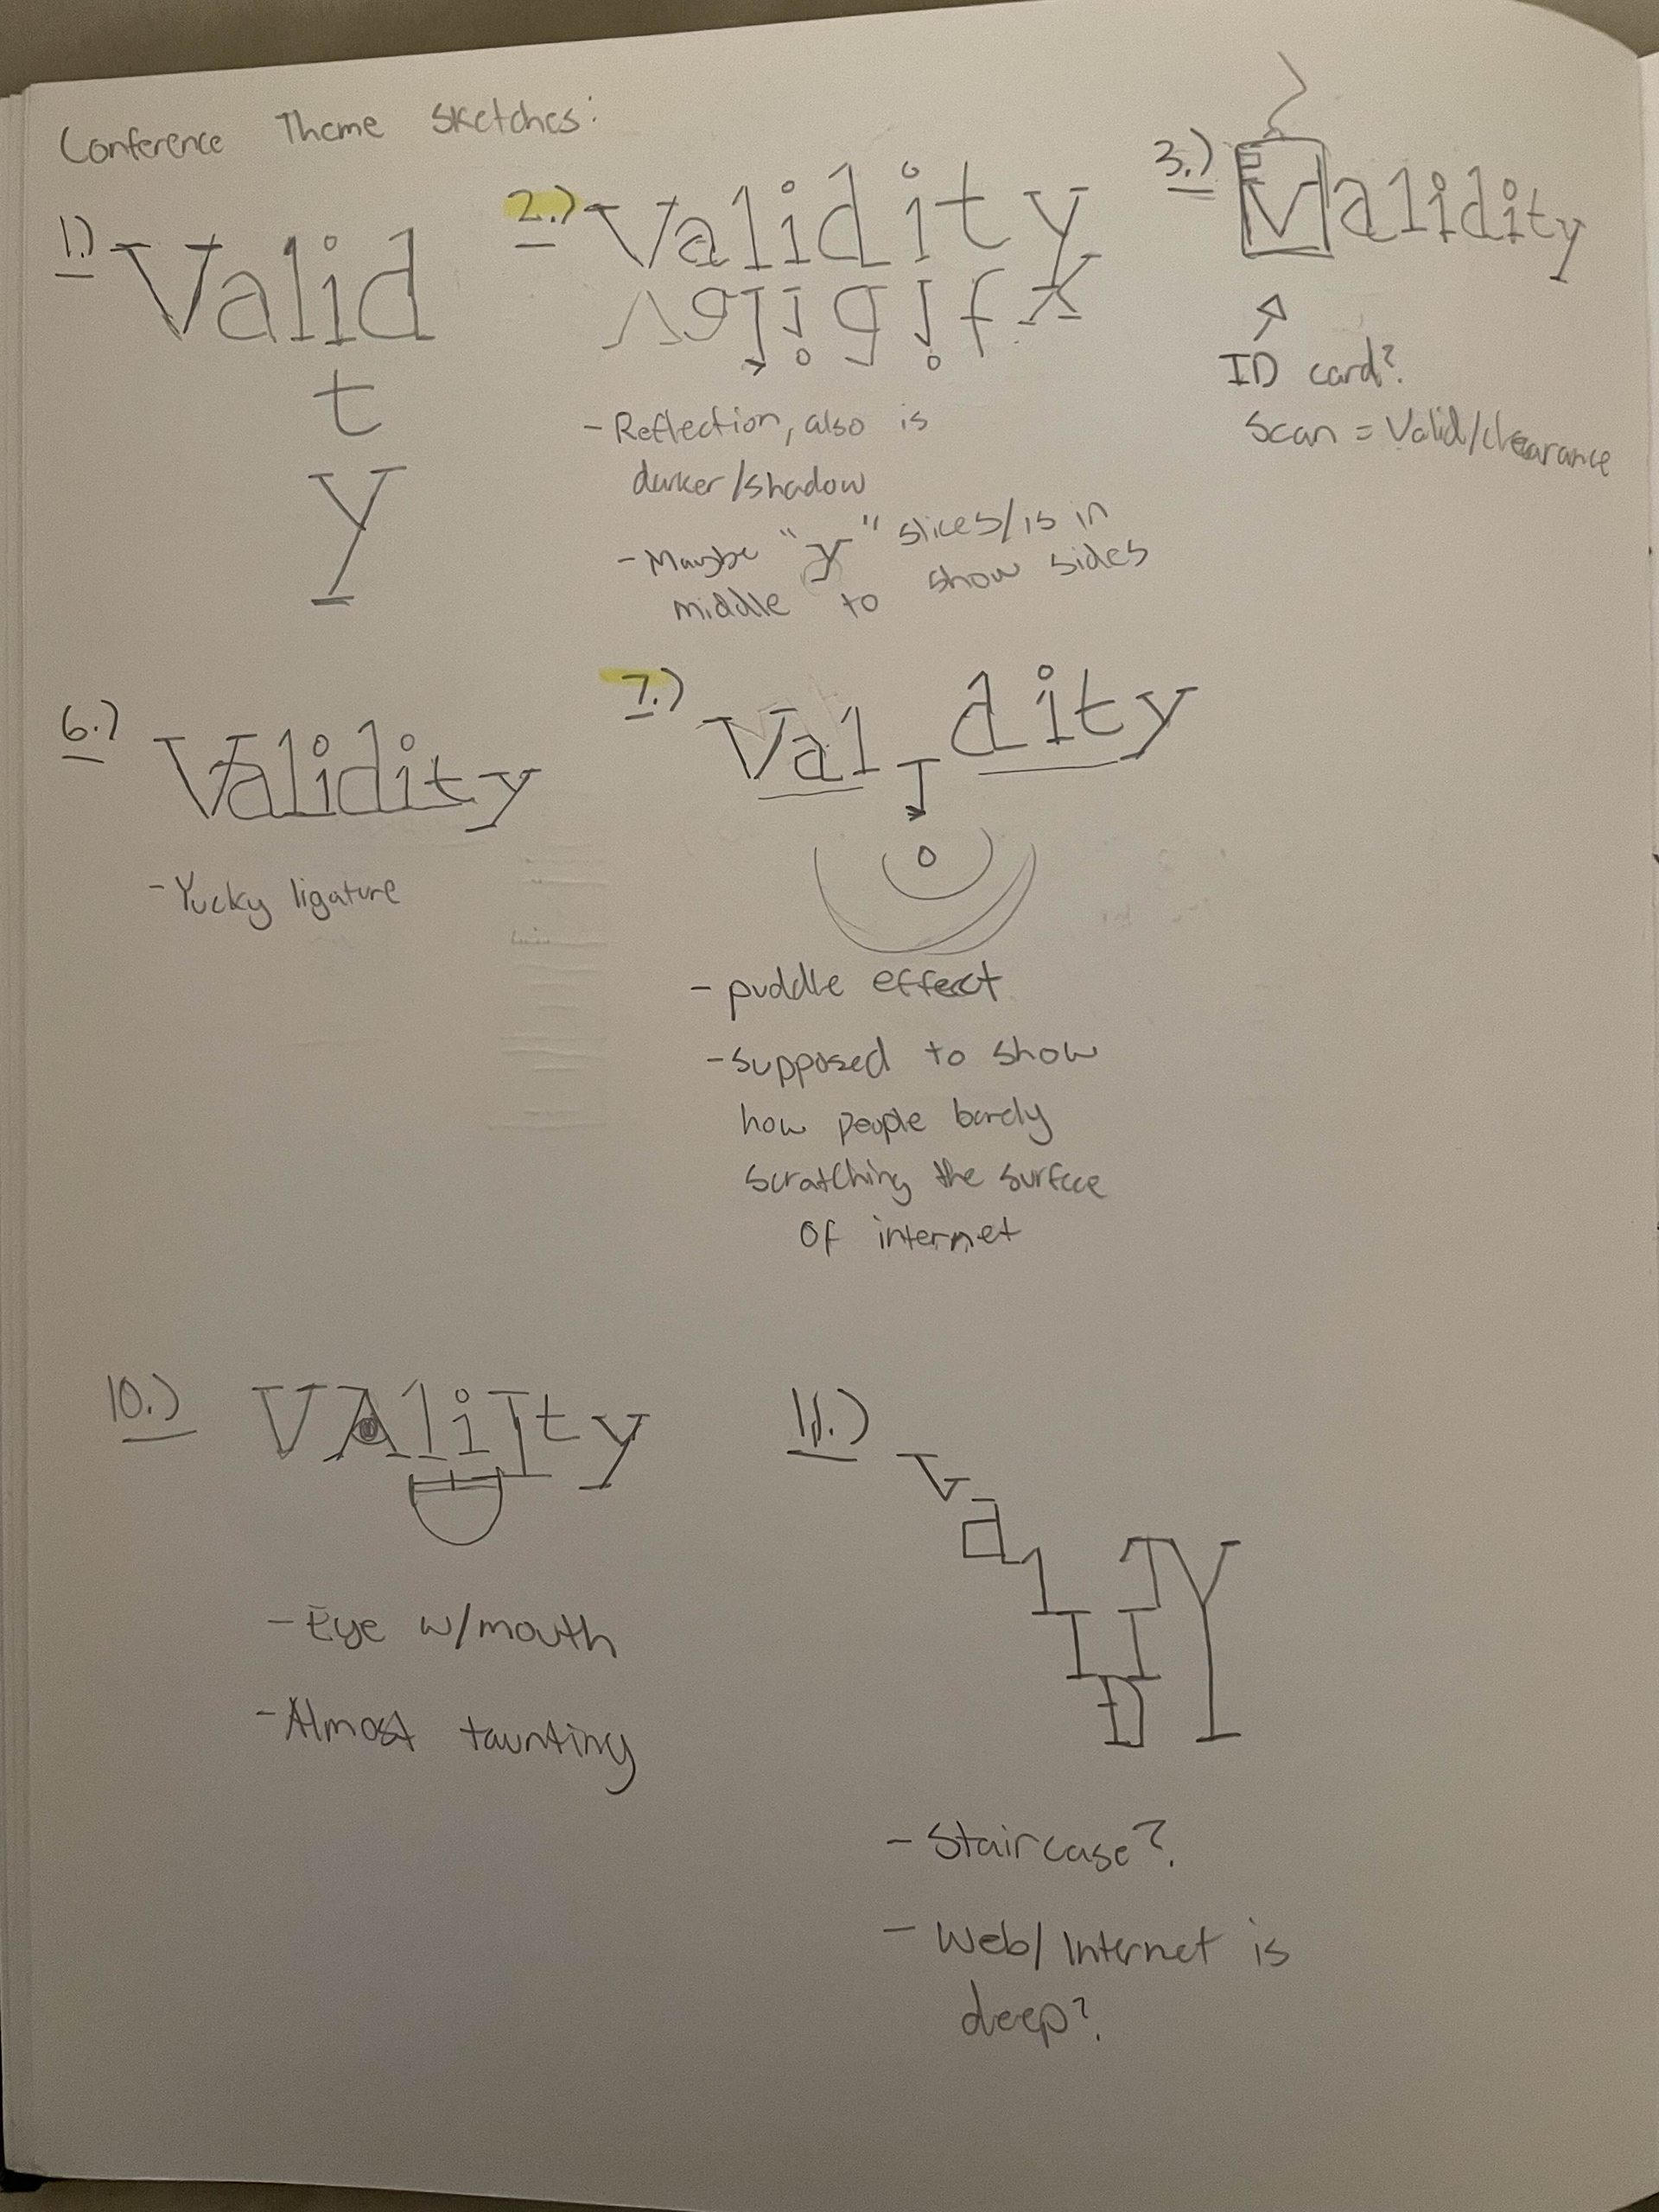 Conference Theme Sketches:
1.) Valid
t
y
2.) Validity
Validity
- Reflection, also is
darker/shadow
- Maybe "y" slices/is in
middle to show sides
3.) Validity
ID card?
Scan = Valid/clearance
6.) Validity
- Yucky ligature
7.) Val I dity
- puddle effect
- supposed to show
how people barely
scratching the surface
of internet
10.) VAliIty
- Eye w/mouth
- Almost taunting
11.) ValIDITY
- Staircase?
- Web/Internet is
deep?